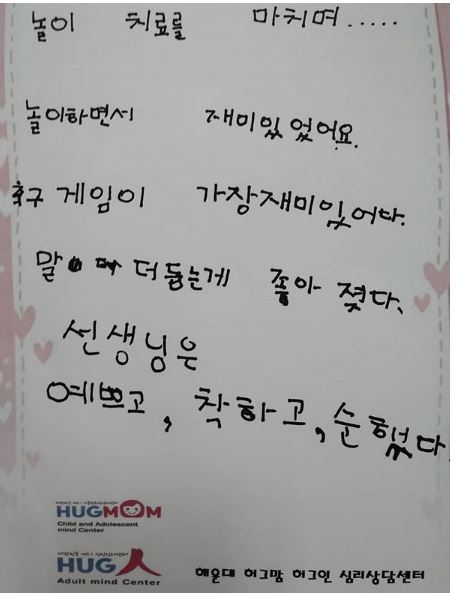 놀이 치료를 마치며.....
놀이하면서 재미있었어요.
축구 게임이 가장재미있어다.
말 더듬는게 좋아 졌다.
선생님은
예쁘고, 착하고, 순했다.
HUGMOM
Child and Adolescent
mind Center
HUG
Adult mind Center
해운대 허그맘 허그인 심리상담센터